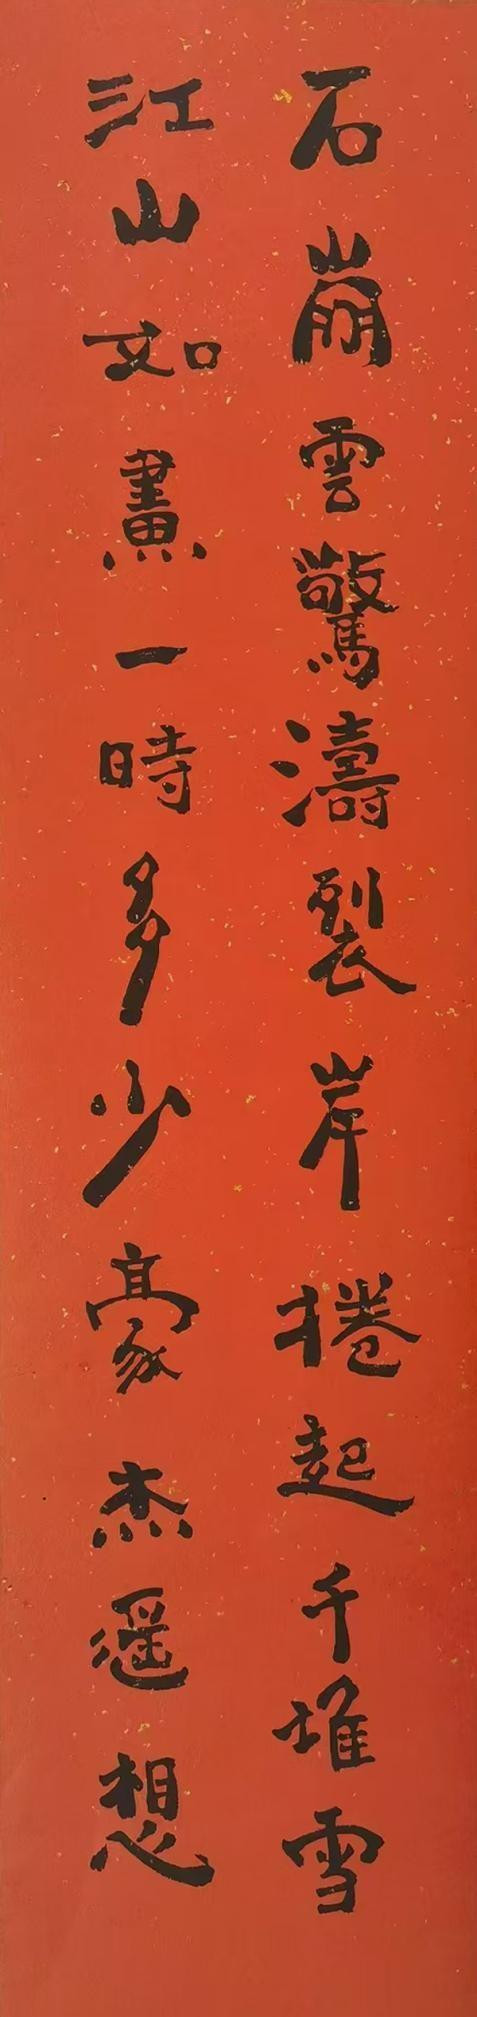 石崩雲驚濤裂岸捲起千堆雪
江山如畫一時多少豪杰遥想